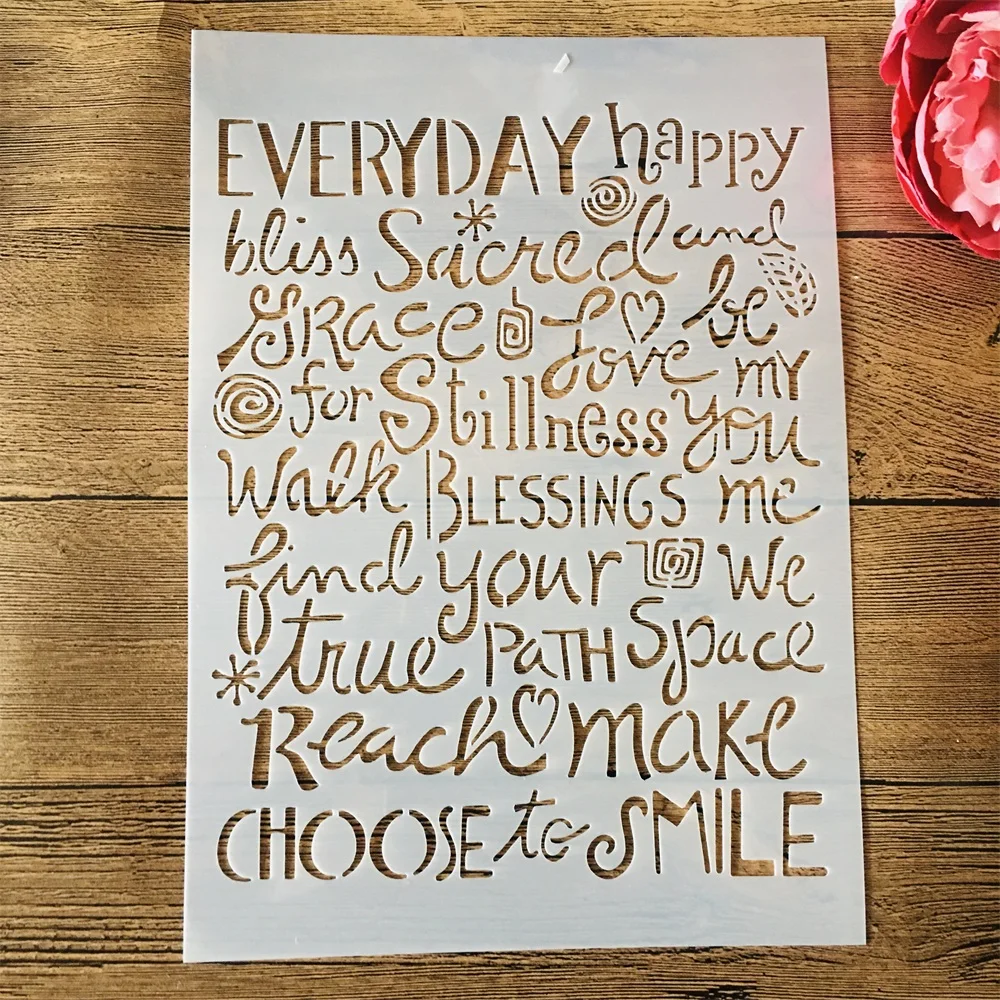 EVERYDAY happy
bliss Sacred and
GRace Love be
for Stillness my
Walk BLESSINGS you me
find your We
true PaTH Space
Reach make
CHOOSE to SMILE